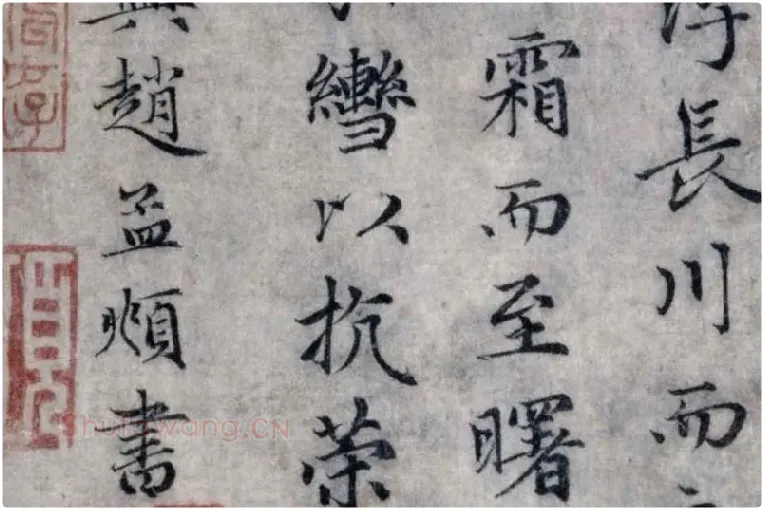 浮長川而
霜而至曙
轡以抗策
興趙孟頫書
Shufawang.CN